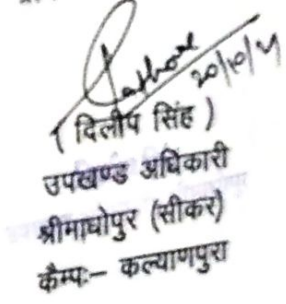 20/10/21
( दिलीप सिंह )
उपखण्ड अधिकारी
श्रीमाधोपुर (सीकर)
कैम्पः– कल्याणपुरा